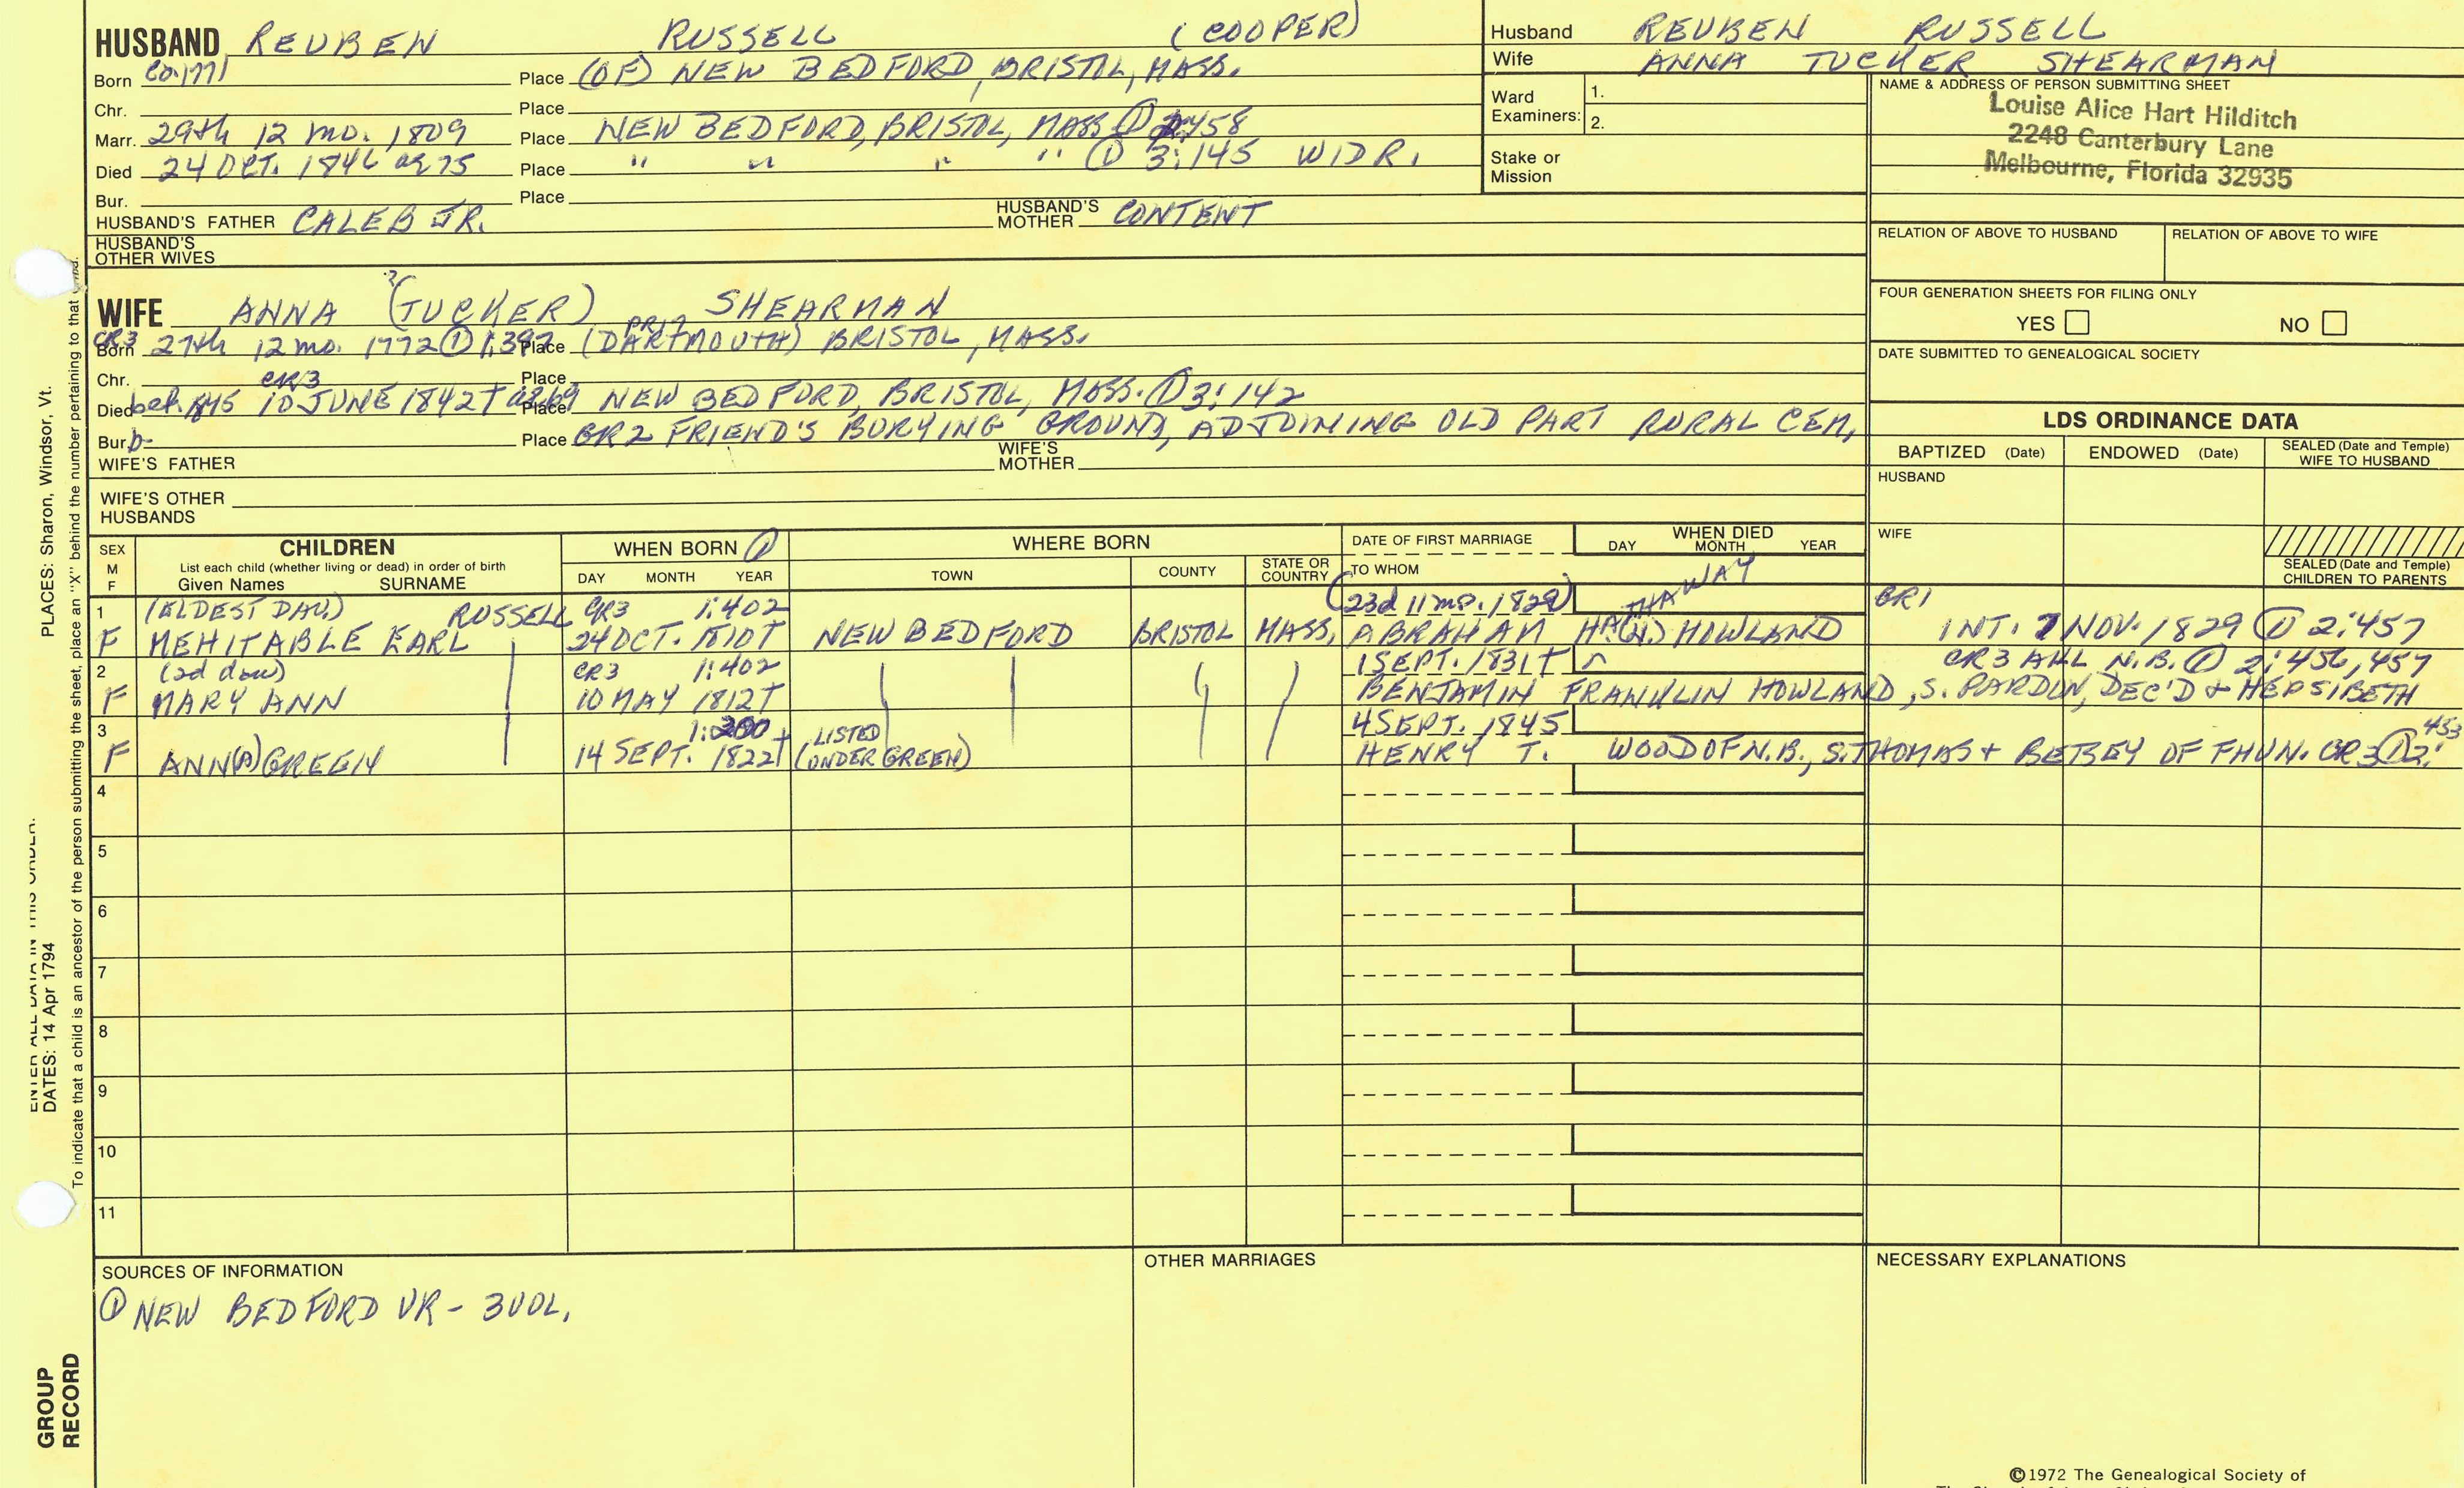 HUSBAND REUBEN RUSSELL (COOPER)
Born Ca. 1771 Place (OF) NEW BEDFORD, BRISTOL, MASS.
Chr. Place
Marr. 29th 12 mo. 1809 Place NEW BEDFORD, BRISTOL, MASS ① 2:458
Died 24 OCT. 1846 ae 75 Place " " " " ① 3:145 WIDR.
Bur. Place
HUSBAND'S FATHER CALEB JR. HUSBAND'S MOTHER CONTENT
HUSBAND'S OTHER WIVES
Husband REUBEN RUSSELL
Wife ANNA TUCKER SHEARMAN
Ward Examiners: 1.
2.
Stake or Mission
NAME & ADDRESS OF PERSON SUBMITTING SHEET
Louise Alice Hart Hilditch
2248 Canterbury Lane
Melbourne, Florida 32935
RELATION OF ABOVE TO HUSBAND RELATION OF ABOVE TO WIFE
FOUR GENERATION SHEETS FOR FILING ONLY
YES NO
DATE SUBMITTED TO GENEALOGICAL SOCIETY
?
WIFE ANNA (TUCKER) SHEARMAN
CR3
Born 27th 12 mo. 1772 ① 1:397 Place (DARTMOUTH) BRISTOL, MASS.
Chr. CR3 Place
Died bef. 1845 10 JUNE 1842† ae 69 Place NEW BEDFORD, BRISTOL, MASS. ① 3:142
Bur. Place GR2 FRIEND'S BURYING GROUND, ADJOINING OLD PART RURAL CEM.
WIFE'S FATHER WIFE'S MOTHER
WIFE'S OTHER HUSBANDS
LDS ORDINANCE DATA
BAPTIZED (Date) ENDOWED (Date) SEALED (Date and Temple) WIFE TO HUSBAND
HUSBAND
WIFE
SEALED (Date and Temple) CHILDREN TO PARENTS
SEX M F CHILDREN List each child (whether living or dead) in order of birth Given Names SURNAME
WHEN BORN ① DAY MONTH YEAR
WHERE BORN TOWN COUNTY STATE OR COUNTRY
DATE OF FIRST MARRIAGE TO WHOM
WHEN DIED DAY MONTH YEAR
1 (ELDEST DAU.) RUSSELL CR3 1:402 (23d 11 mo. 1829) HATHAWAY
F MEHITABLE EARL 24 OCT. 1810† NEW BEDFORD BRISTOL MASS. ABRAHAM (H.) HOWLAND INT. 7 NOV. 1829 ① 2:457
2 (2d dau) CR3 1:402 1 SEPT. 1831† CR3 ALL N.B. ① 2:456,457
F MARY ANN 10 MAY 1812† BENJAMIN FRANKLIN HOWLAND, S. PARDON, DEC'D & HEPSIBETH
3 4 SEPT. 1845 453
F ANN(A) GREEN 14 SEPT. 1822† (LISTED UNDER GREEN) HENRY T. WOOD OF N.B., S. THOMAS & BETSEY OF FHVN. CR3 ① 2:
4
5
6
7
8
9
10
11
SOURCES OF INFORMATION
① NEW BEDFORD VR - 3 VOL.
OTHER MARRIAGES
NECESSARY EXPLANATIONS
©1972 The Genealogical Society of
PLACES: Sharon, Windsor, Vt.
DATES: 14 Apr 1794
To indicate that a child is an ancestor of the person submitting the sheet, place an "X" behind the number pertaining to that
GROUP RECORD